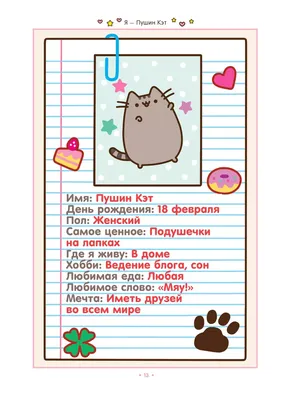 Я — Пушин Кэт
Имя: Пушин Кэт
День рождения: 18 февраля
Пол: Женский
Самое ценное: Подушечки
на лапках
Где я живу: В доме
Хобби: Ведение блога, сон
Любимая еда: Любая
Любимое слово: «Мяу!»
Мечта: Иметь друзей
во всем мире